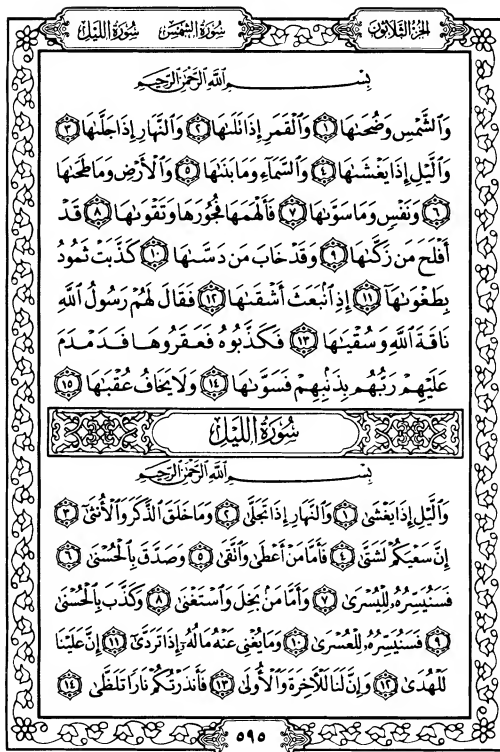 الجزء الثلاثون سورة الشمس سورة الليل
بِسْمِ ٱللَّهِ ٱلرَّحْمَٰنِ ٱلرَّحِيمِ
وَٱلشَّمْسِ وَضُحَىٰهَا ١ وَٱلْقَمَرِ إِذَا تَلَىٰهَا ٢ وَٱلنَّهَارِ إِذَا جَلَّىٰهَا ٣
وَٱلَّيْلِ إِذَا يَغْشَىٰهَا ٤ وَٱلسَّمَآءِ وَمَا بَنَىٰهَا ٥ وَٱلْأَرْضِ وَمَا طَحَىٰهَا
٦ وَنَفْسٍ وَمَا سَوَّىٰهَا ٧ فَأَلْهَمَهَا فُجُورَهَا وَتَقْوَىٰهَا ٨ قَدْ
أَفْلَحَ مَن زَكَّىٰهَا ٩ وَقَدْ خَابَ مَن دَسَّىٰهَا ١٠ كَذَّبَتْ ثَمُودُ
بِطَغْوَىٰهَآ ١١ إِذِ ٱنۢبَعَثَ أَشْقَىٰهَا ١٢ فَقَالَ لَهُمْ رَسُولُ ٱللَّهِ
نَاقَةَ ٱللَّهِ وَسُقْيَٰهَا ١٣ فَكَذَّبُوهُ فَعَقَرُوهَا فَدَمْدَمَ
عَلَيْهِمْ رَبُّهُم بِذَنۢبِهِمْ فَسَوَّىٰهَا ١٤ وَلَا يَخَافُ عُقْبَٰهَا ١٥
سُورَةُ اللَّيْلِ
بِسْمِ ٱللَّهِ ٱلرَّحْمَٰنِ ٱلرَّحِيمِ
وَٱلَّيْلِ إِذَا يَغْشَىٰ ١ وَٱلنَّهَارِ إِذَا تَجَلَّىٰ ٢ وَمَا خَلَقَ ٱلذَّكَرَ وَٱلْأُنثَىٰٓ ٣
إِنَّ سَعْيَكُمْ لَشَتَّىٰ ٤ فَأَمَّا مَنْ أَعْطَىٰ وَٱتَّقَىٰ ٥ وَصَدَّقَ بِٱلْحُسْنَىٰ ٦
فَسَنُيَسِّرُهُۥ لِلْيُسْرَىٰ ٧ وَأَمَّا مَنۢ بَخِلَ وَٱسْتَغْنَىٰ ٨ وَكَذَّبَ بِٱلْحُسْنَىٰ
٩ فَسَنُيَسِّرُهُۥ لِلْعُسْرَىٰ ١٠ وَمَا يُغْنِي عَنْهُ مَالُهُۥٓ إِذَا تَرَدَّىٰٓ ١١ إِنَّ عَلَيْنَا
لَلْهُدَىٰ ١٢ وَإِنَّ لَنَا لَلْآخِرَةَ وَٱلْأُولَىٰ ١٣ فَأَنذَرْتُكُمْ نَارًا تَلَظَّىٰ ١٤
٥٩٥